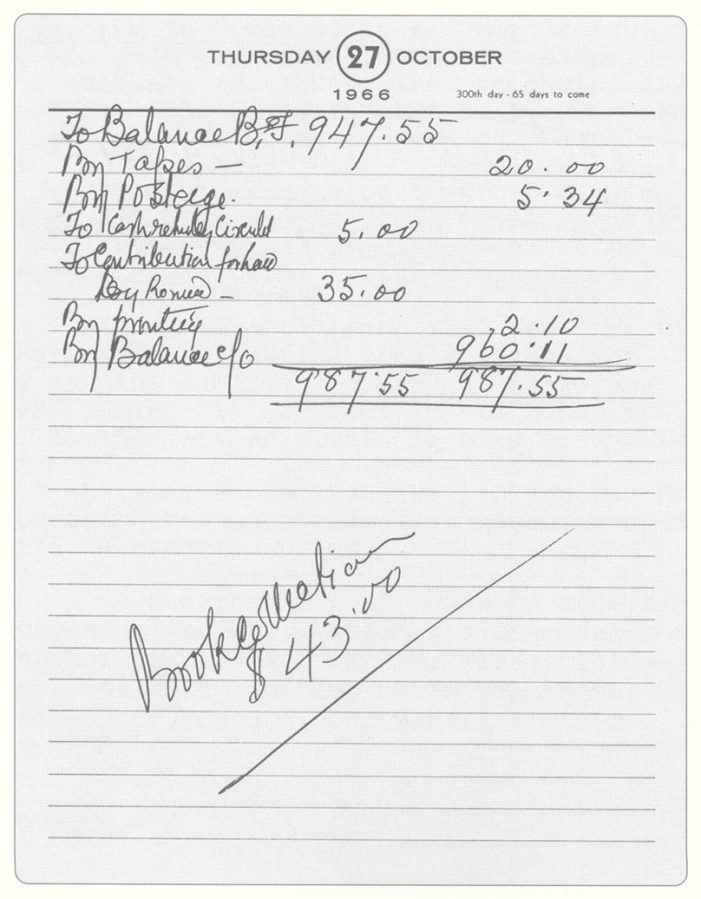 THURSDAY 27 OCTOBER
1966 300th day - 65 days to come
To Balance B.F. 947.55
By Tapes — 20.00
By Postage. 5.34
To Cash 5.00
To Contribution from
35.00
By printing 2.10
By Balance c/o 960.11
987.55 987.55
Book Collection
$43.00